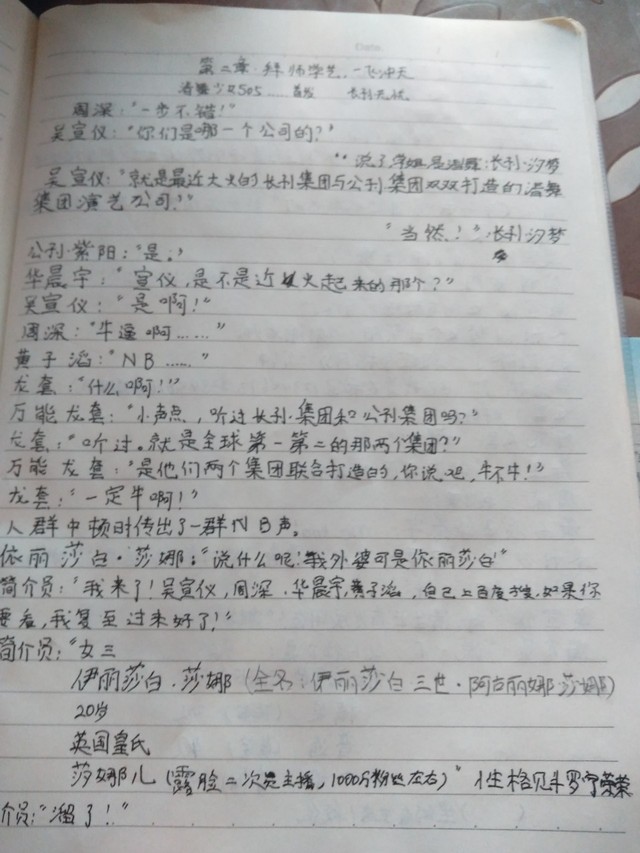 Date
第二章·拜师学艺,一飞冲天
少女505……首发 长利尤优
周深:“一步不错!”
吴宣仪:“你们是哪一个公司的?”
长利·汐梦
吴宣仪:“就是最近大火的长利集团与公利集团双双打造的洛舞
集团演艺公司?”
“当然!”长利汐梦
公利·紫阳:“是。”
华晨宇:“宣仪,是不是近火起来的那个?”
吴宣仪:“是啊!”
周深:“牛逼啊……”
黄子滔:“NB……”
龙套:“什么啊!”
万能龙套:“小声点,听过长利·集团和公利集团吗?”
龙套:“听过。就是全球第一第二的那两个集团?”
万能龙套:“是他们两个集团联合打造的,你说吧,牛不牛!”
龙套:“一定牛啊!”
人群中顿时传出了一群NB声。
依丽莎白·莎娜:“说什么呢!我外婆可是依丽莎白”
简介员:“我来了!吴宣仪,周深·华晨宇,黄子滔,自己上百度搜,如果你
要看,我复至过来好了!”
简介员:“女三
伊丽莎白·莎娜(全名:伊丽莎白三世·阿古丽娜·莎娜)
20岁
英国皇氏
莎娜儿(露脸二次是主播,1000万粉丝左右)”性格见斗罗宁荣荣
介员:“溜了!”